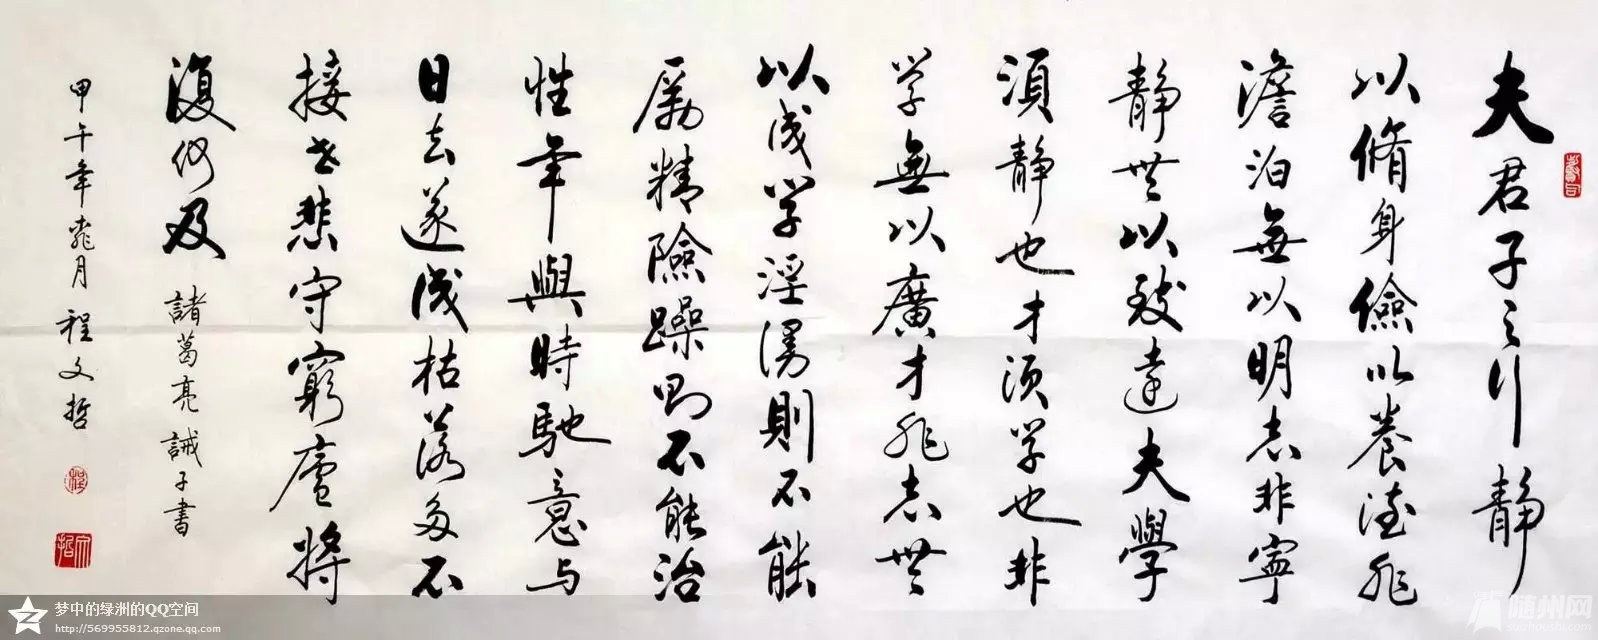 夫君子之行静
以脩身儉以養德非
澹泊無以明志非寧
静無以致遠夫學
須静也才須学也非
学無以廣才非志無
以成学淫漫則不能
勵精險躁則不能治
性年與時馳意与
日去遂成枯落多不
接世悲守窮廬將
復何及 諸葛亮誡子書
甲午年桃月 程文哲
梦中的绿洲的QQ空间
http://569955812.qzone.qq.com
随州网
suizhoushi.com